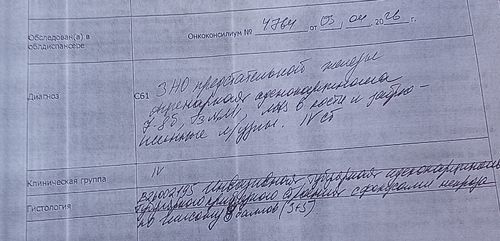 Обследован(а) в облдиспансере
Онкоконсилиум № 4764 от 03, 04 2026 г.
Диагноз
С61 ЗНО предстательной железы
Ацинарная аденокарцинома
mts в кости и забрю-
шинные л/узлы. IV ст
Клиническая группа
IV
Гистология
Инвазивная ацинарная аденокарцинома
строения с фокусами некроза
по Глисону 8 баллов (3+5)